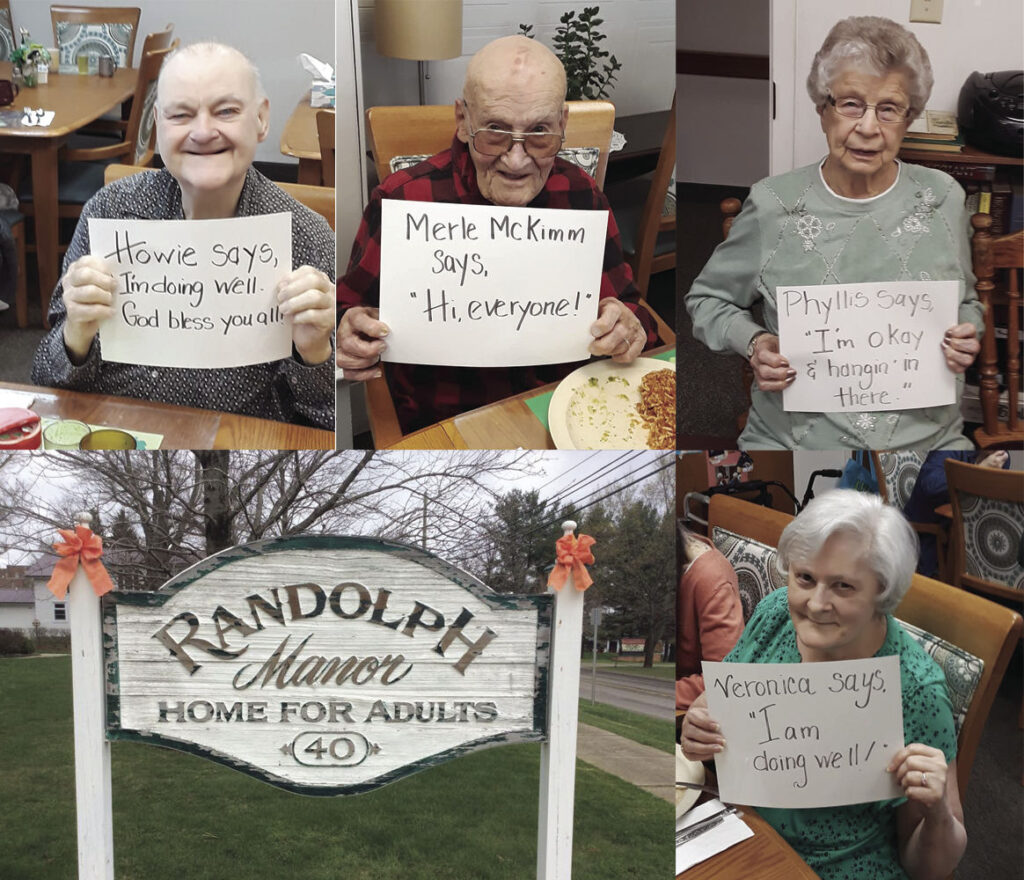 Howie says,
I'm doing well.
God bless you all,
Merle McKimm
says,
"Hi, everyone!"
Phyllis says,
"I'm okay
& hangin' in
there."
RANDOLPH
Manor
HOME FOR ADULTS
40
Veronica says,
"I am
doing well!"